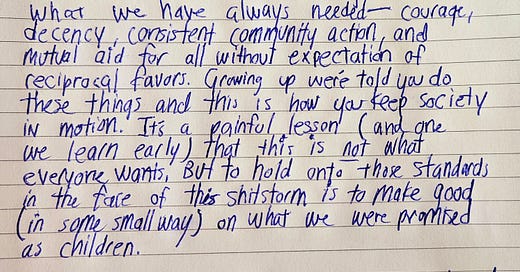 what we have always needed— courage,
decency, consistent community action, and
mutual aid for all without expectation of
reciprocal favors. Growing up we're told you do
these things and this is how you keep society
in motion. It's a painful lesson (and one
we learn early) that this is not what
everyone wants, But to hold onto those standards
in the face of this shitstorm is to make good
(in some small way) on what we were promised
as children.